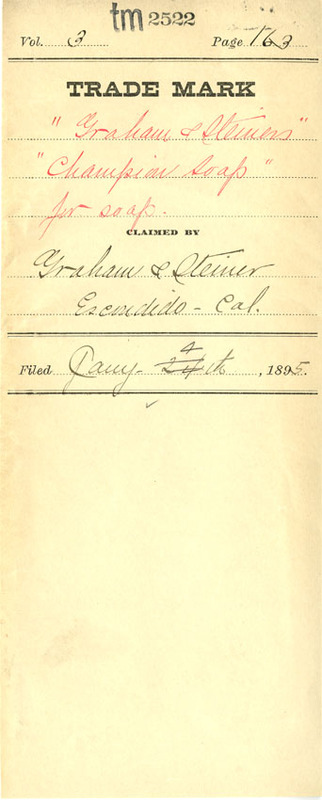 tm 2522
Vol. 3 Page 163
TRADE MARK
"Graham & Steiners"
"Champion Soap"
for soap.
CLAIMED BY
Graham & Steiner
Escondido - Cal.
Filed Jany- 4 24th, 1895.